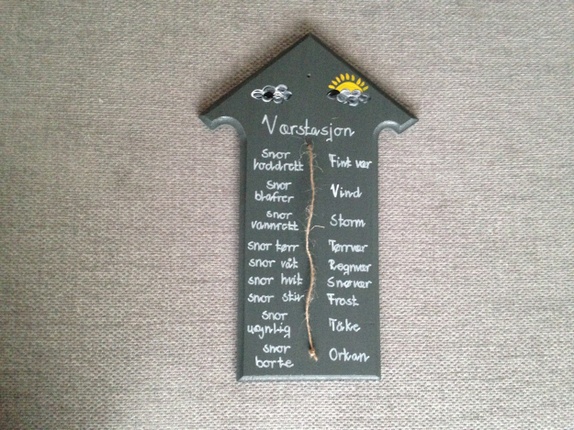 Værstasjon
snor loddrett Fint vær
snor blafrer Vind
snor vannrett Storm
snor tørr Tørrvær
snor våt Regnvær
snor hvit Snøvær
snor stiv Frost
snor usynlig Tåke
snor borte Orkan